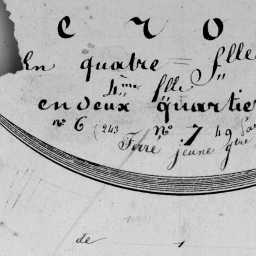 cro
En quatre flles
4ème flle
en deux quartie
n° 6 (243 N° 7 49
Terre jeune que
de 1